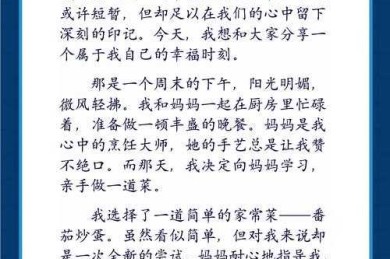 或许短暂，但却足以在我们的心中留下
深刻的印记。今天，我想和大家分享一
个属于我自己的幸福时刻。
那是一个周末的下午，阳光明媚，
微风轻拂。我和妈妈一起在厨房里忙碌
着，准备做一顿丰盛的晚餐。妈妈是我
心中的烹饪大师，她的手艺总是让我赞
不绝口。而那天，我决定向妈妈学习，
亲手做一道菜。
我选择了一道简单的家常菜——番
茄炒蛋。虽然看似简单，但对我来说却
是一次全新的尝试。妈妈耐心地指导我，